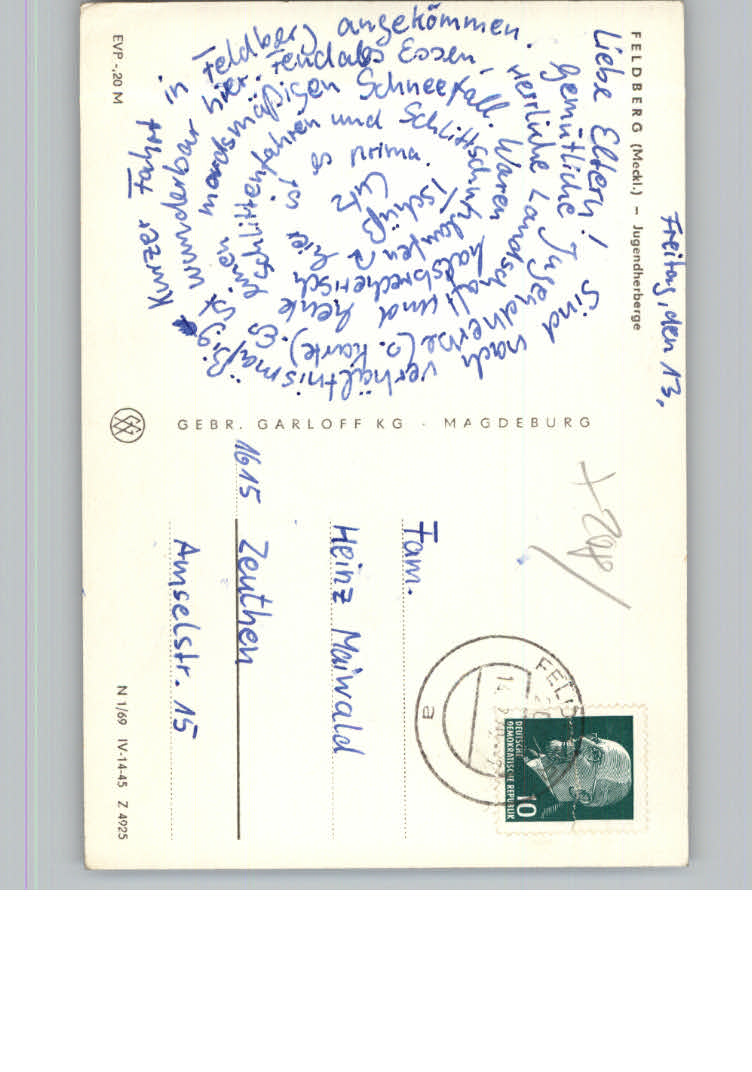 FELDBERG (Meckl.) – Jugendherberge
Freitag, den 13.
Liebe Eltern! Sind nach verhältnismäßig kurzer Fahrt in Feldberg angekommen.
Gemütliche Jugendherbe (s. Karte). Es ist wunderbar hier. Feudales Essen,
herrliche Landschaft und heute einen Schneefall. Waren
halsbrecherisch schlittenfahren und Schlittschuhlaufen
hier so prima.
Tschüß
Lutz
EVP -,20 M
GEBR. GARLOFF KG · MAGDEBURG
Fam.
Heinz Maiwald
1615 Zeuthen
Amselstr. 15
DEUTSCHE
DEMOKRATISCHE REPUBLIK
10
e
N 1/69 IV-14-45 Z 4925